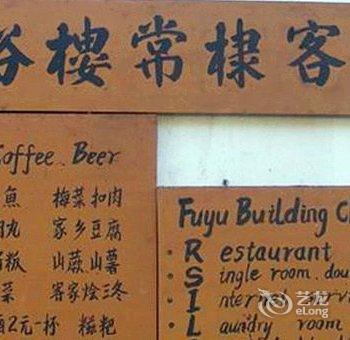 裕樓常棣客
Coffee. Beer
魚 梅菜扣肉
肉丸 家乡豆腐
粄 山蕨山薯
菜 客家烩三冬
酒2元一杯 糍粑
Fuyu Building C
· Restaurant
· Single room. dou
· Internet servi
· Laundry room
艺龙
eLong